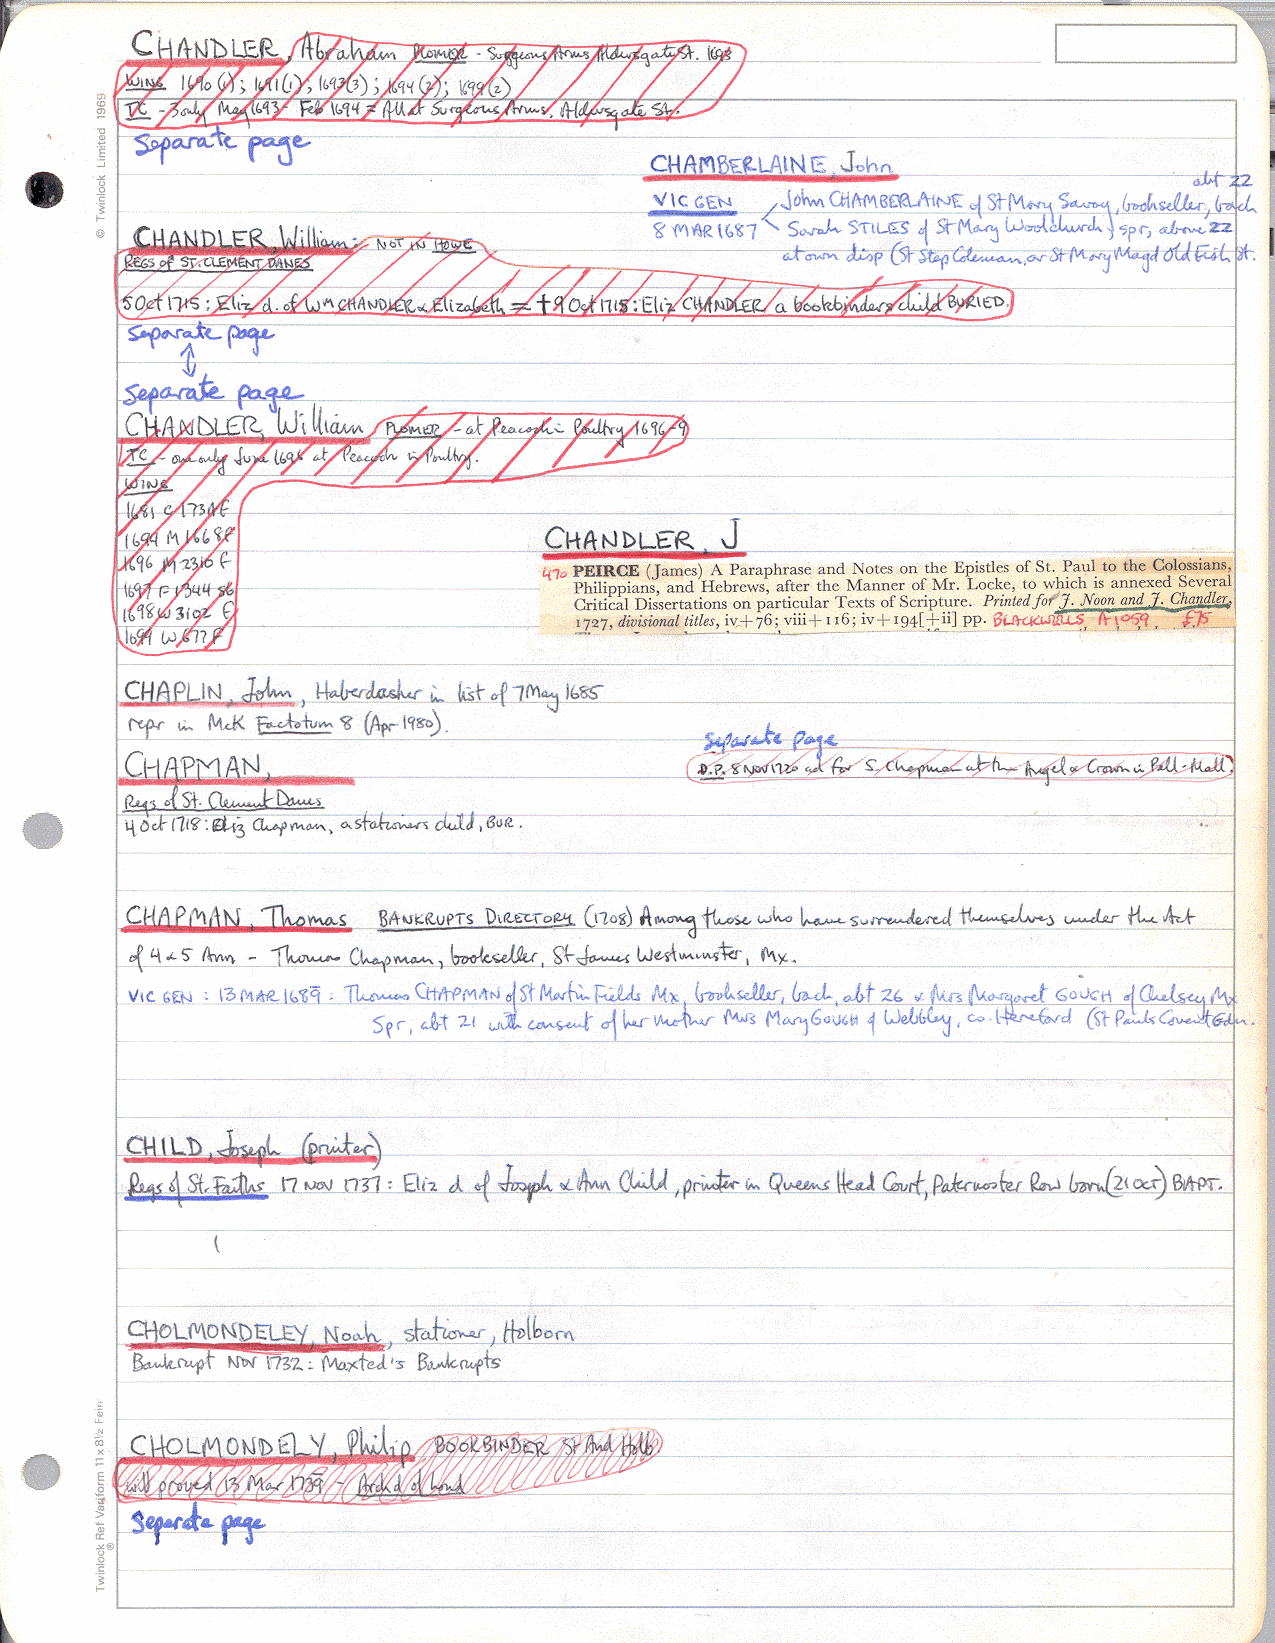 CHANDLER, Abraham PLOMER - Surgeons Arms Aldersgate St. 1693
WING 1690 (1); 1691 (1); 1693 (3); 1694 (2); 1699 (2)
TC - 3 only May 1693 - Feb 1694 = All at Surgeons Arms, Aldersgate St.
Separate page
CHAMBERLAINE, John
VIC GEN
8 MAR 1687
abt 22
John CHAMBERLAINE of St Mary Savoy, bookseller, bach
Sarah STILES of St Mary Woolchurch, spr, above 22
at own disp (St Step Coleman, or St Mary Magd Old Fish St.
CHANDLER, William: NOT IN HOWE
REGS of ST. CLEMENT DANES
5 Oct 1715: Eliz d. of Wm CHANDLER & Elizabeth = † 9 Oct 1715: Eliz CHANDLER a bookbinders child BURIED.
Separate page
Separate page
CHANDLER, William PLOMER - at Peacock in Poultry 1696-9
TC - one only June 1696 at Peacock in Poultry.
WING
1681 C 1734 E
1694 M 1668 F
1696 M 2310 F
1697 F 1344 86
1698 W 3102 E
1699 W 677 F
CHANDLER, J
470 PEIRCE (James) A Paraphrase and Notes on the Epistles of St. Paul to the Colossians,
Philippians, and Hebrews, after the Manner of Mr. Locke, to which is annexed Several
Critical Dissertations on particular Texts of Scripture. Printed for J. Noon and J. Chandler,
1727, divisional titles, iv+76; viii+116; iv+194[+ii] pp. BLACKWELLS A1059 £75
CHAPLIN, John, Haberdasher in list of 7 May 1685
repr in McK Factotum 8 (Apr 1980).
Separate page
CHAPMAN,
D.P. 8 NOV 1720 ad for S. Chapman at the Angel & Crown in Pall-Mall.
Regs of St. Clement Danes
4 Oct 1718: Eliz Chapman, a stationers child, BUR.
CHAPMAN, Thomas BANKRUPTS DIRECTORY (1708) Among those who have surrendered themselves under the Act
of 4 & 5 Ann - Thomas Chapman, bookseller, St James Westminster, Mx.
VIC GEN: 13 MAR 1689: Thomas CHAPMAN of St Martin Fields Mx, bookseller, bach, abt 26 & Mrs Margaret GOUGH of Chelsey Mx
Spr, abt 21 with consent of her mother Mrs Mary GOUGH of Webbley, co. Hereford (St Pauls Covent Gdn.
CHILD, Joseph (printer)
Regs of St. Faiths 17 NOV 1737: Eliz d of Joseph & Ann Child, printer in Queens Head Court, Paternoster Row born (21 OCT) BAPT.
CHOLMONDELEY, Noah, stationer, Holborn
Bankrupt NOV 1732: Maxted's Bankrupts
CHOLMONDELY, Philip BOOKBINDER St And Holb
will proved 13 Mar 1739 - Archd of Lond
Separate page
© Twinlock Limited 1969
Twinlock Ref Variform 11 x 8½ Feint